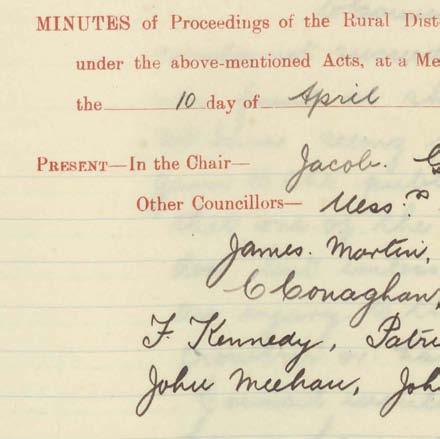 MINUTES of Proceedings of the Rural Dist
under the above-mentioned Acts, at a Me
the 10 day of April
PRESENT—In the Chair— Jacob. G
Other Councillors— Messrs
James. Martin,
C Conaghan
F. Kennedy, Patri
John Meehan, Joh